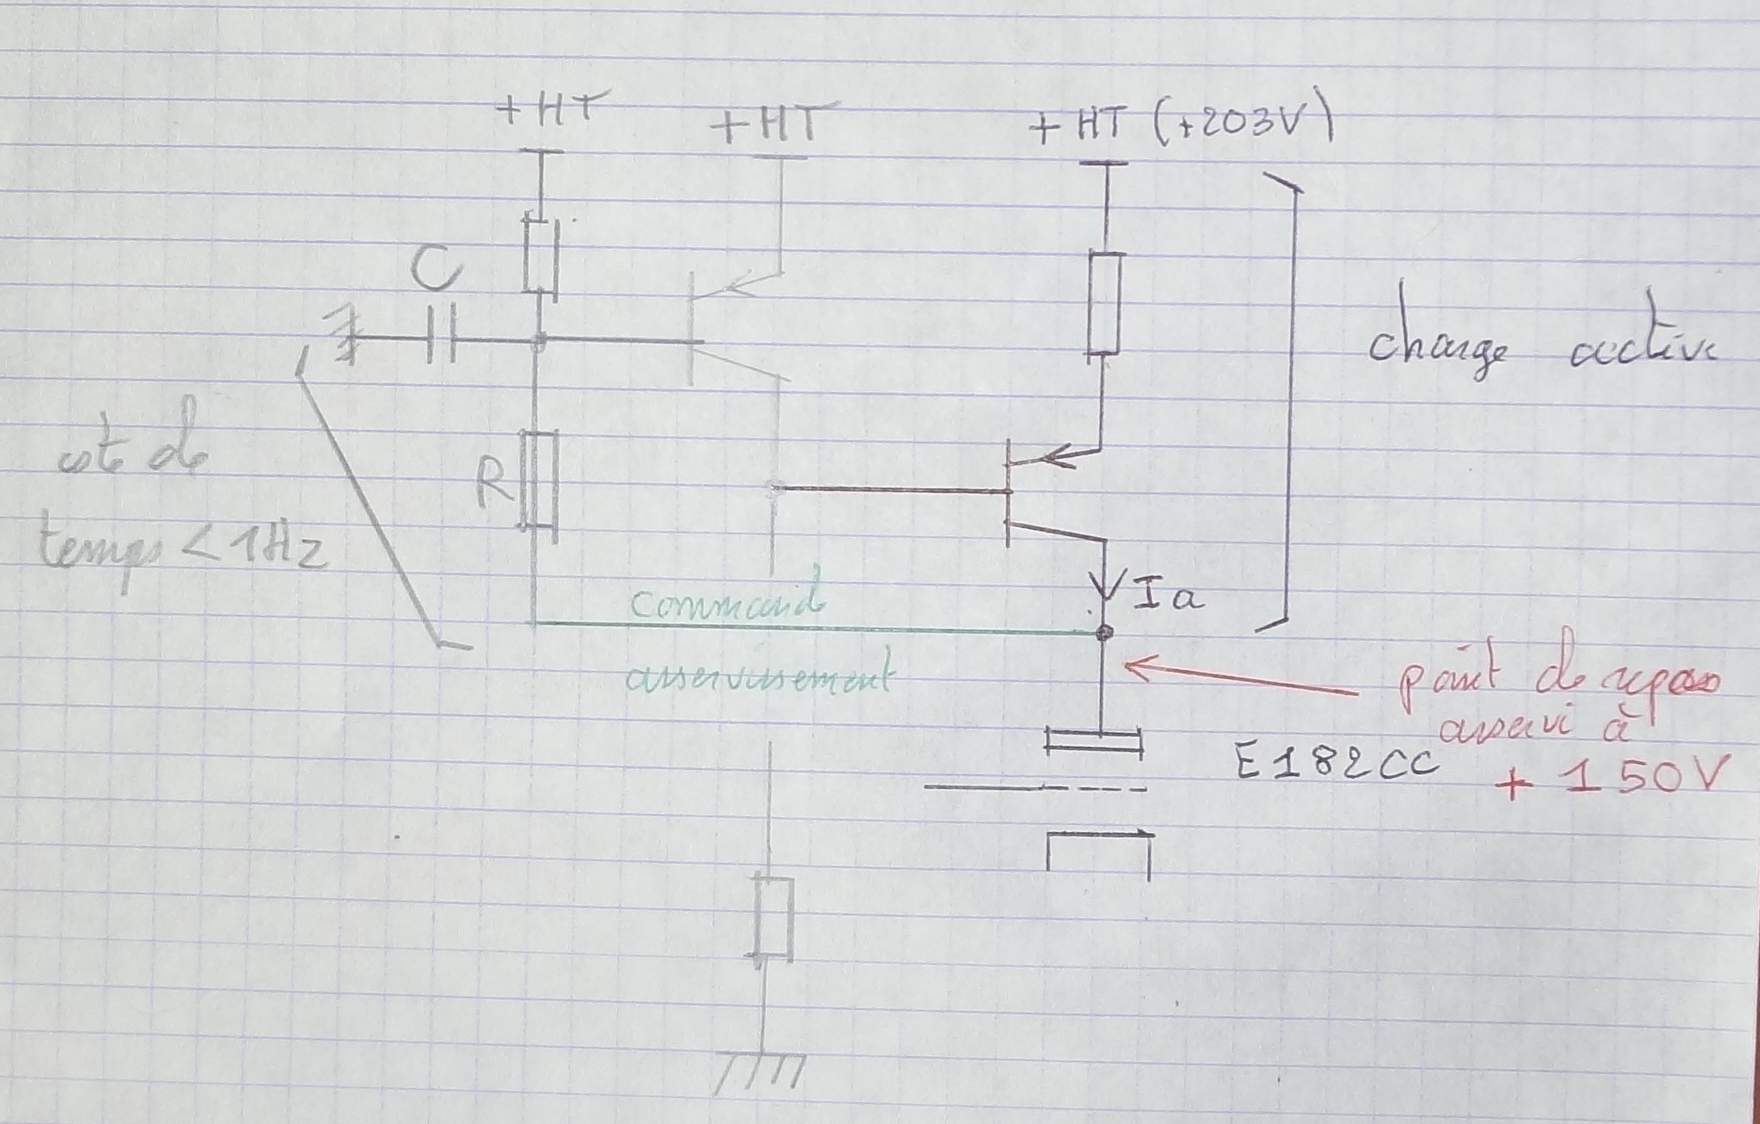 +HT
+HT
+HT (+203V)
C
charge active
cte de
temps < 1Hz
R
Ia
command
asservissement
point de repos
asservi à
+ 150V
E182CC